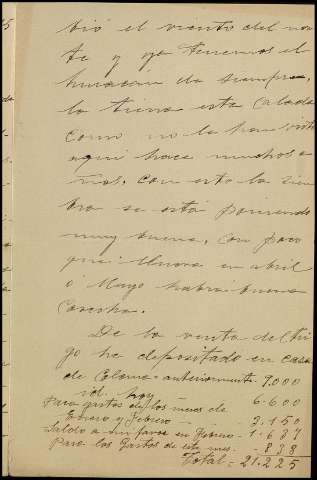 bió el viento del nor
te y ya tenemos el
huracán de siempre,
la tierra está calada
como no la han visto
aquí hace muchos a
ños, con esto la siem
bra se está poniendo
muy buena, con poco
que llueva en abril
ó Mayo habrá buena
cosecha.
De la venta del tri
go he depositado en casa
de Coloma - anteriormente - 9.000
id. hoy 6.600
Para gastos de los meses de
Enero y Febrero - 3.150
Saldo a su favor en Febrero - 1.637
Para los gastos de este mes - 838
Total = 21.225